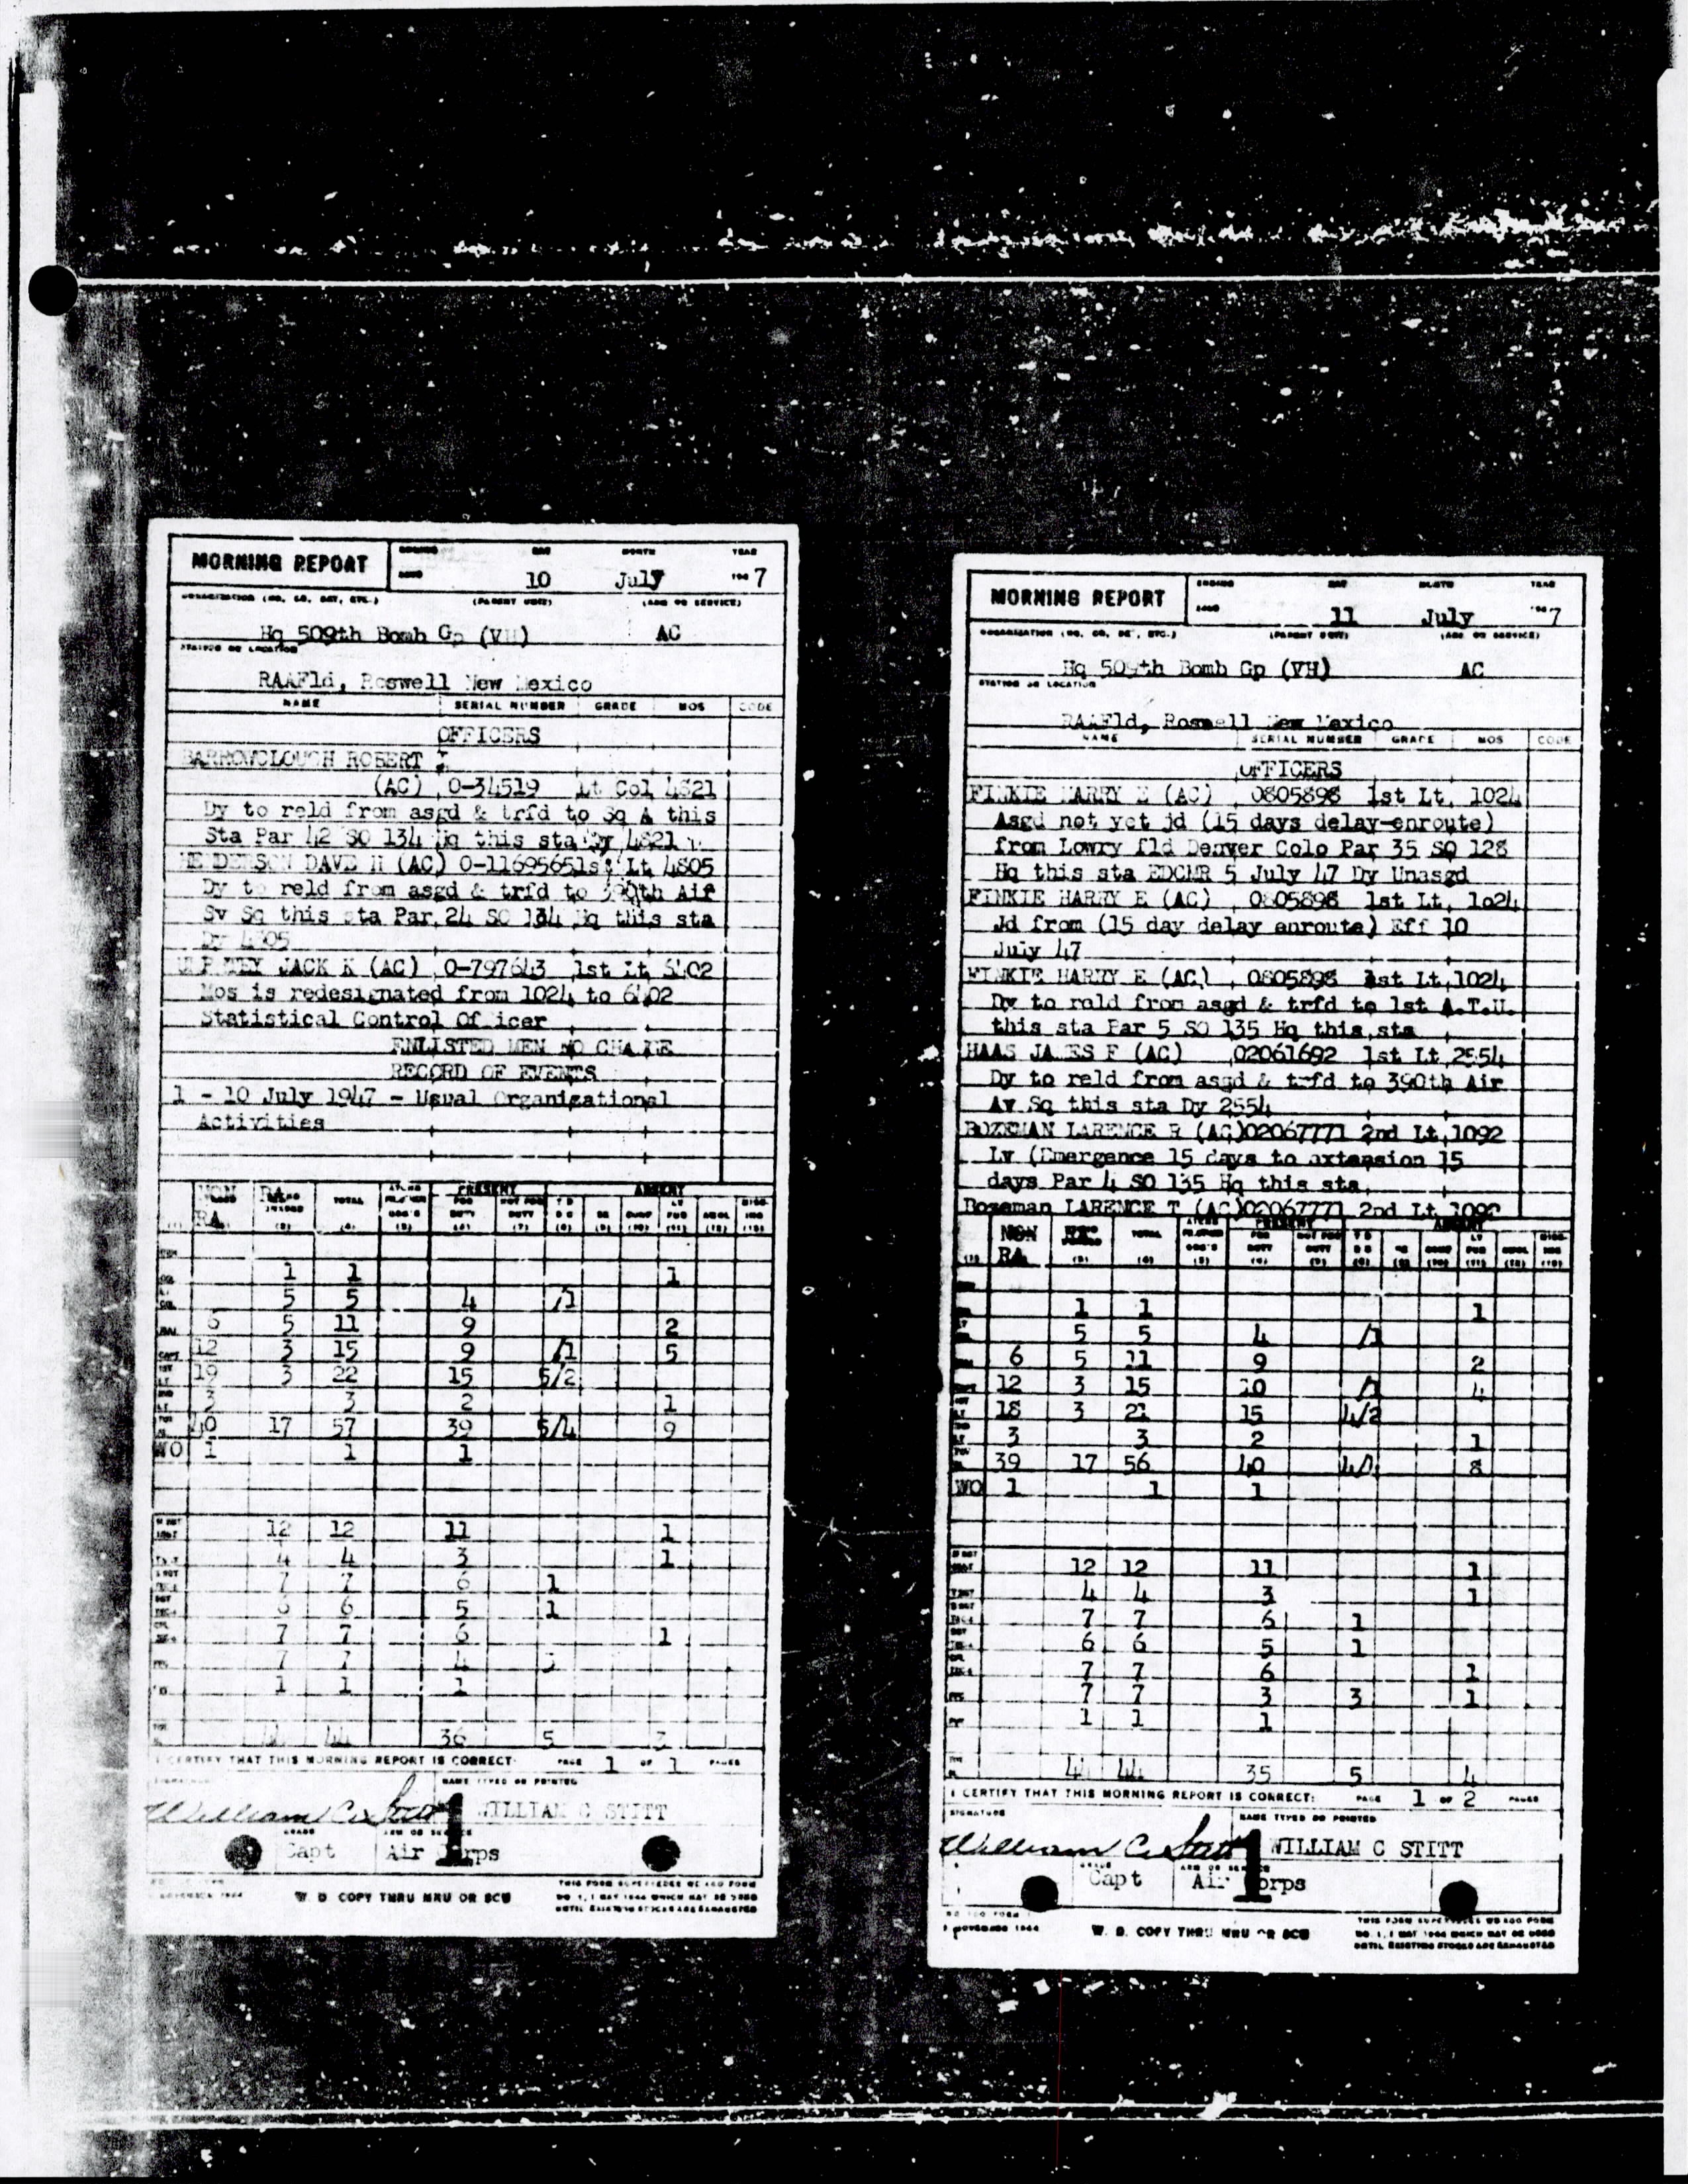 MORNING REPORT
ENDING DAY MONTH YEAR
10 July 1947
ORGANIZATION (NO, CO, DET, ETC.) (PARENT UNIT) (ARM OR SERVICE)
Hq 509th Bomb Gp (VH) AC
STATION OR LOCATION
RAAFld, Roswell New Mexico
NAME SERIAL NUMBER GRADE MOS CODE
OFFICERS
BARROWCLOUGH ROBERT I
(AC) O-34519 Lt Col 4821
Dy to reld from asgd & trfd to Sq A this
Sta Par 42 SO 134 Hq this sta Dy 4821
HENDERSON DAVE H (AC) O-1169565 1st Lt 4805
Dy to reld from asgd & trfd to 390th Air
Sv Sq this sta Par 24 SO 134 Hq this sta
Dy 4805
JACK K (AC) O-797643 1st Lt 6402
Mos is redesignated from 1024 to 6402
Statistical Control Officer
ENLISTED MEN NO CHANGE
RECORD OF EVENTS
1 - 10 July 1947 - Usual Organizational
Activities
NON RA RA TOTAL PRESENT ABSENT
1 1 1
5 5 4 /1
6 5 11 9 2
12 3 15 9 /1 5
19 3 22 15 5/2
3 3 2 1
40 17 57 39 5/4 9
WO 1 1 1
12 12 11 1
4 4 3 1
7 7 6 1
6 6 5 1
7 7 6 1
7 7 4 3
1 1 1
44 44 36 5 3
I CERTIFY THAT THIS MORNING REPORT IS CORRECT: PAGE 1 OF 1 PAGES
NAME TYPED OR PRINTED
William C Stitt WILLIAM C STITT
GRADE ARM OR SERVICE
Capt Air Corps
1
W. D COPY THRU MRU OR SCU
THIS FORM SUPERSEDES WD AGO FORM
NO. 1, 1 MAY 1944 WHICH MAY BE USED
UNTIL EXISTING STOCKS ARE EXHAUSTED
MORNING REPORT
ENDING DAY MONTH YEAR
11 July 1947
ORGANIZATION (NO, CO, DET, ETC.) (PARENT UNIT) (ARM OR SERVICE)
Hq 509th Bomb Gp (VH) AC
STATION OR LOCATION
RAAFld, Roswell New Mexico
NAME SERIAL NUMBER GRADE MOS CODE
OFFICERS
FINKIE HARRY E (AC) 0805898 1st Lt 1024
Asgd not yet jd (15 days delay-enroute)
from Lowry fld Denver Colo Par 35 SO 128
Hq this sta EDCMR 5 July 47 Dy Unasgd
FINKIE HARRY E (AC) 0805898 1st Lt 1o24
Jd from (15 day delay enroute) Eff 10
July 47
FINKIE HARRY E (AC) 0805898 1st Lt 1024
Dy to reld from asgd & trfd to 1st A.T.U.
this sta Par 5 SO 135 Hq this sta
HAAS JAMES F (AC) 02061692 1st Lt 2554
Dy to reld from asgd & trfd to 390th Air
Av Sq this sta Dy 2554
BOZEMAN LARENCE R (AC)02067771 2nd Lt 1092
Lv (Emergence 15 days to extension 15
days Par 4 SO 135 Hq this sta
Bozeman LARENCE T (AC)02067771 2nd Lt 1092
NON RA TOTAL PRESENT ABSENT
1 1 1
5 5 4 /1
6 5 11 9 2
12 3 15 10 /1 4
18 3 21 15 4/2
3 3 2 1
39 17 56 40 4/4 8
WO 1 1 1
12 12 11 1
4 4 3 1
7 7 6 1
6 6 5 1
7 7 6 1
7 7 3 3 1
1 1 1
44 44 35 5 4
I CERTIFY THAT THIS MORNING REPORT IS CORRECT: PAGE 1 OF 2 PAGES
SIGNATURE NAME TYPED OR PRINTED
William C Stitt WILLIAM C STITT
GRADE ARM OR SERVICE
Capt Air Corps
1
1 NOVEMBER 1944
W. D. COPY THRU MRU OR SCU
THIS FORM SUPERSEDES WD AGO FORM
NO. 1, 1 MAY 1944 WHICH MAY BE USED
UNTIL EXISTING STOCKS ARE EXHAUSTED